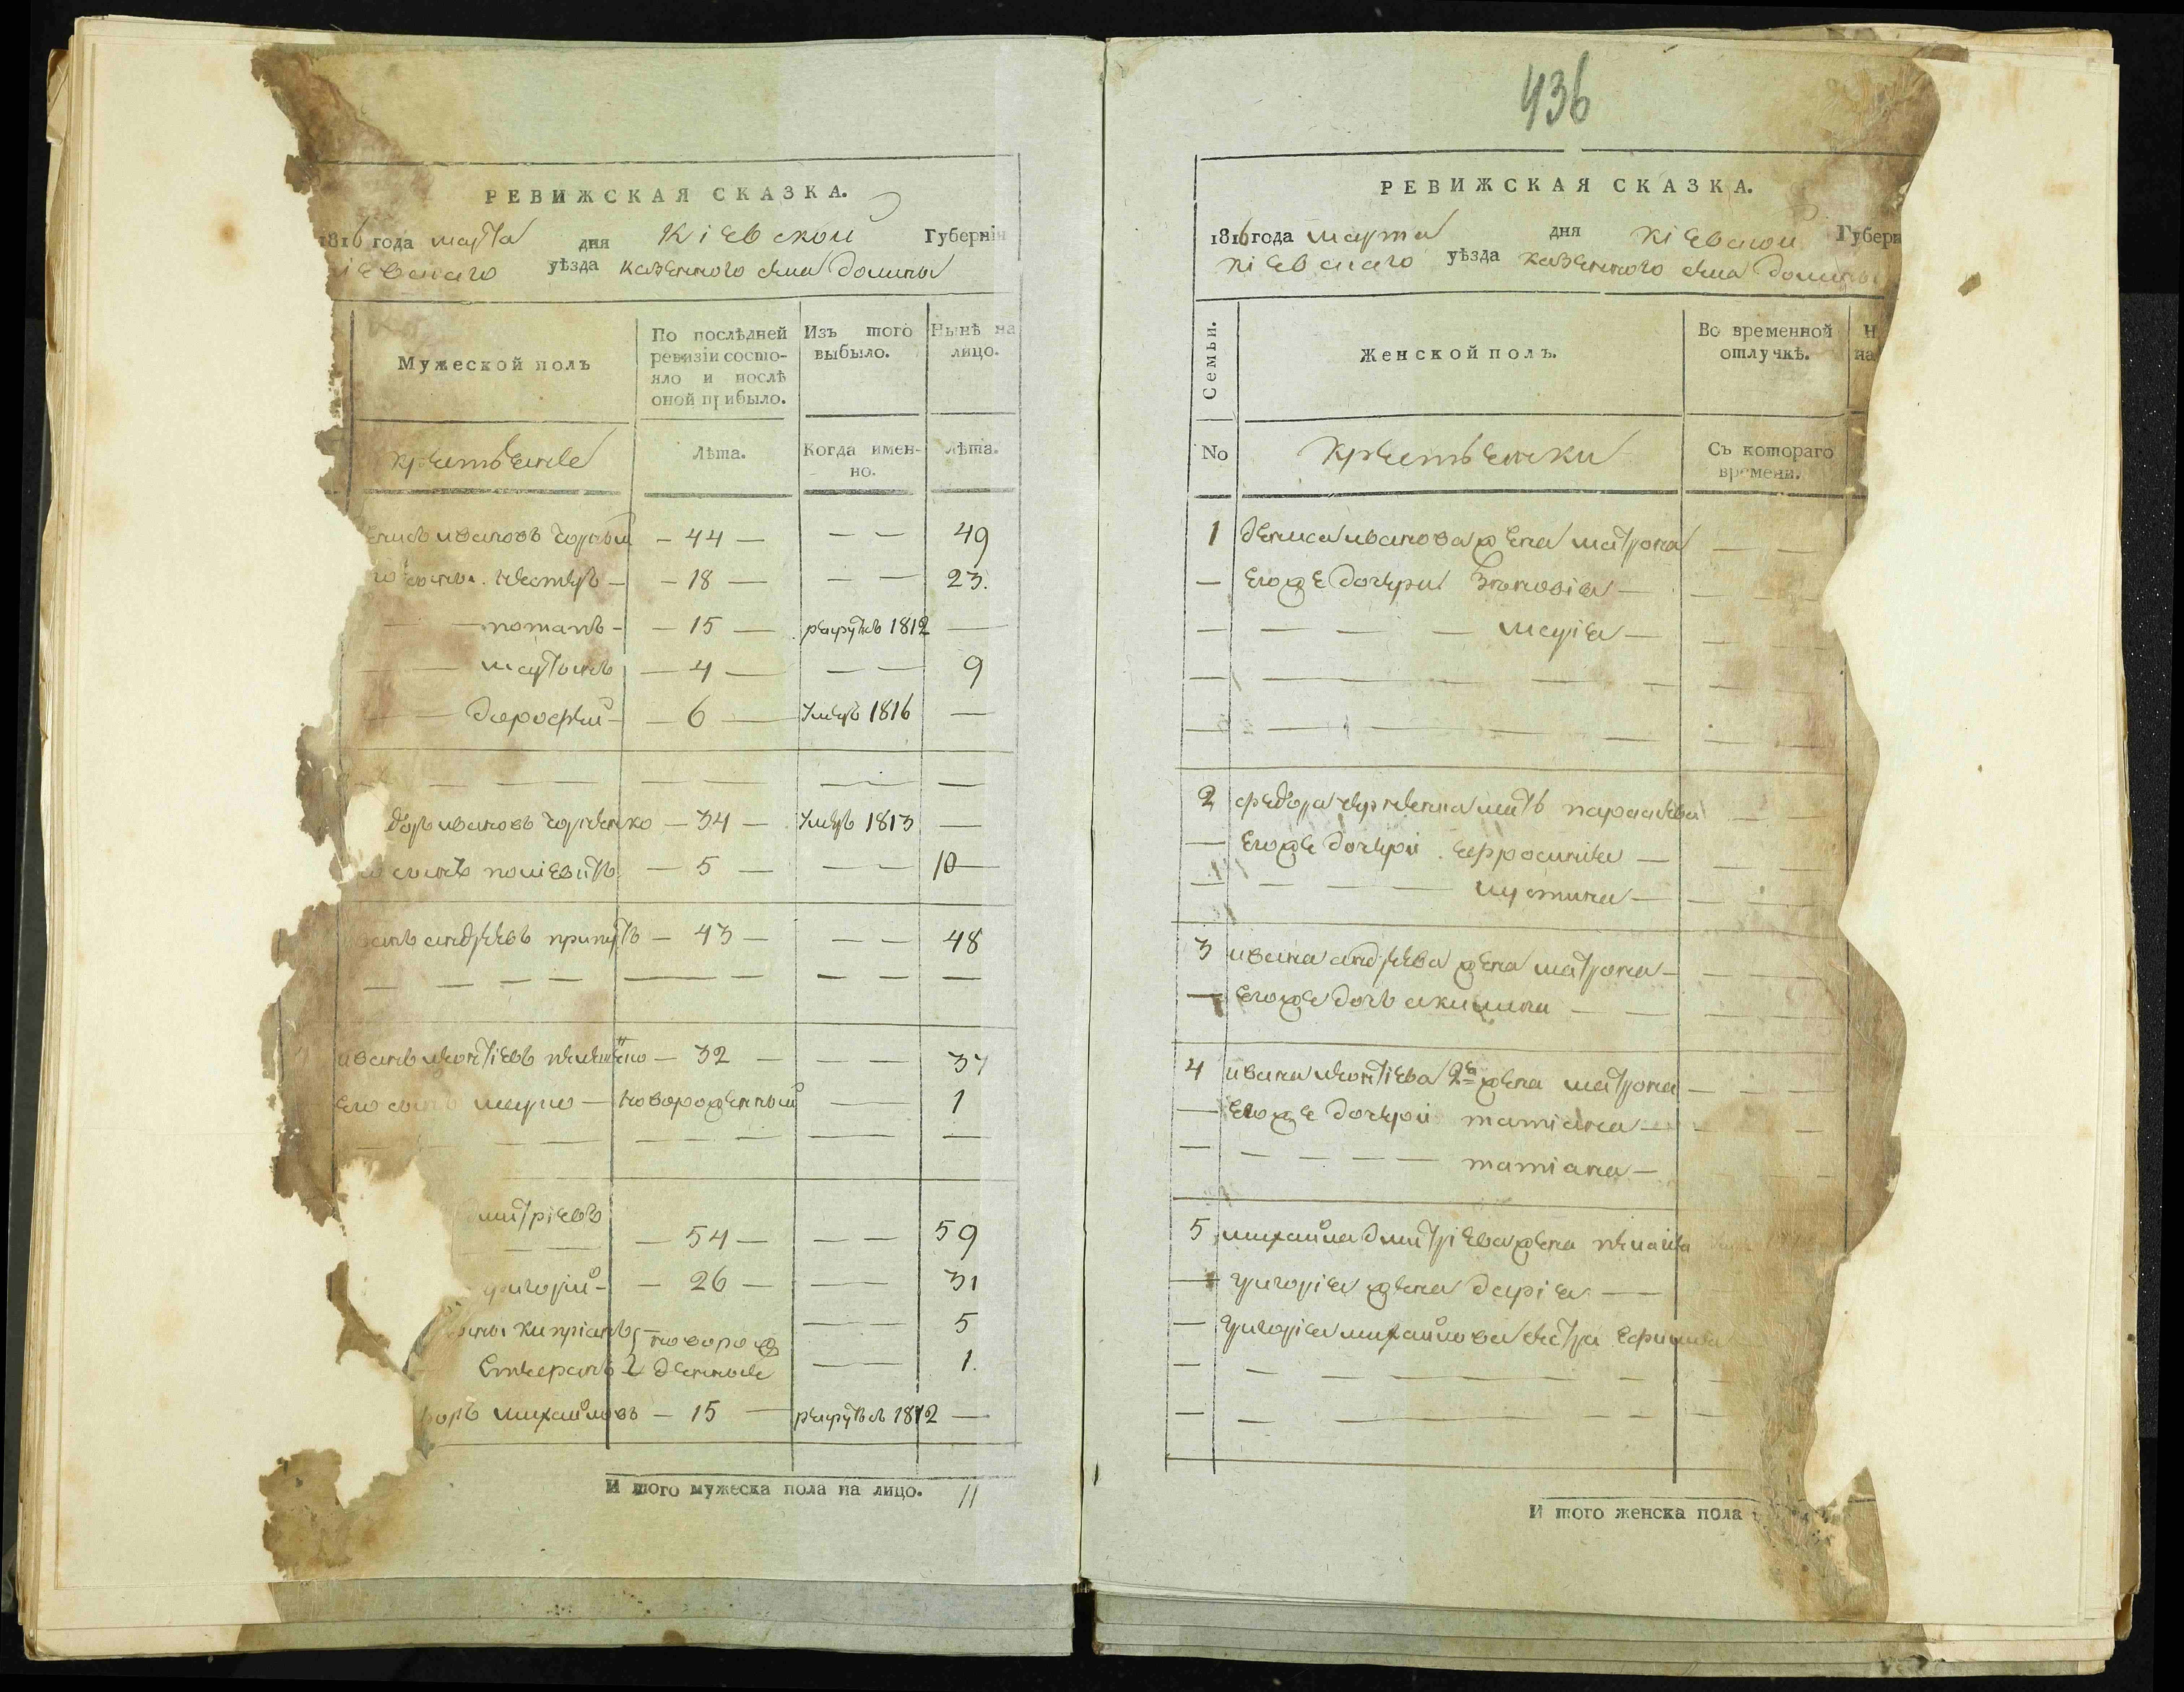 РЕВИЖСКАЯ СКАЗКА.
1816 года марта дня Кіевской Губерніи
кіевскаго уѣзда казенного села долины
Мужеской полъ
По послѣдней ревизіи состо-
яло и послѣ
оной прибыло.
Изъ того
выбыло.
Нынѣ на
лицо.
крестьяне
Лѣта.
Когда имен-
но.
лѣта.
иванов чорный — 44 — — — 49
— 18 — — — 23.
потапъ — — 15 — рекрутъ 1812 —
мартынъ — 4 — — — 9
дорофей — — 6 — умеръ 1816 —
ивановъ — 34 — умеръ 1813 —
сынъ — 5 — — — 10 —
андреевъ — 43 — — — 48
иванъ леонтіевъ — 32 — — — 37
его сынъ марко — новорожденный — 1
дмитріевъ
— 54 — — — 59
григорій — — 26 — — — 31
кипріянъ новорож — 5
денные — 1.
михайловъ — 15 — рекрутъ 1812 —
И того мужеска пола на лицо. 11
436
РЕВИЖСКАЯ СКАЗКА.
1816 года марта дня кіевской Губерн
кіевскаго уѣзда казенного села долины
Семьи.
Женской полъ.
Во временной
отлучкѣ.
Н
на
No
крестьянки
Съ котораго
времени.
1 дениса иванова жена матрона — —
— его же дочери зѣновія —
— — — — — марія —
2 федора мать параскева
— его же дочери ефросинія —
— — — — — устина —
3 ивана андреева жена матрона —
— его же дочь акилина — —
4 ивана леонтіева 2я жена матрона —
— его же дочери татіана —
— — — — — татіана —
5 михайла дмитріева жена пелагея
— григорія жена дарія —
— григорія михайлова сестра ефимия
И того женска пола